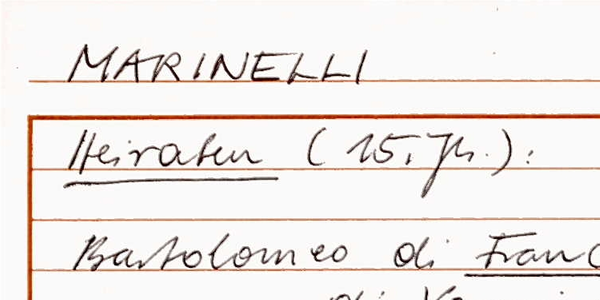 MARINELLI
Heiraten (15. Jh.):
Bartolomeo di Franc
di